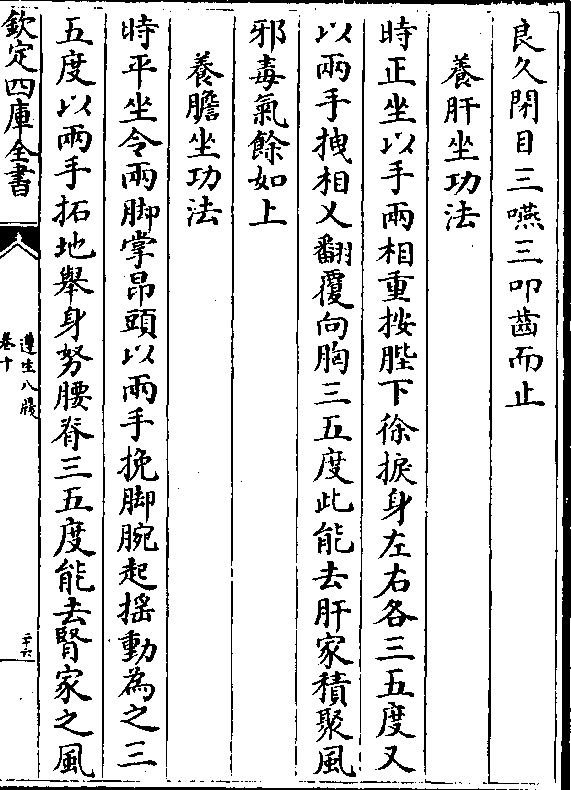 良久閉目三嚥三叩齒而止
養肝坐功法
時正坐以手兩相重按䏶下徐捩身左右各三五度又
以兩手拽相乂翻覆向胸三五度此能去肝家積聚風
邪毒氣餘如上
養膽坐功法
時平坐令兩脚掌昂頭以兩手挽脚腕起揺動為之三
五度以兩手拓地舉身努腰脊三五度能去腎家之風
欽定四庫全書
遵生八牋
卷十
二十六